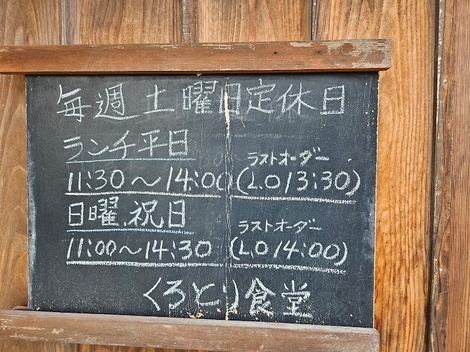 毎週土曜日定休日
ランチ平日
ラストオーダー
11:30～14:00(L.O 13:30)
日曜、祝日
ラストオーダー
11:00～14:30 (L.O 14:00)
くろとり食堂